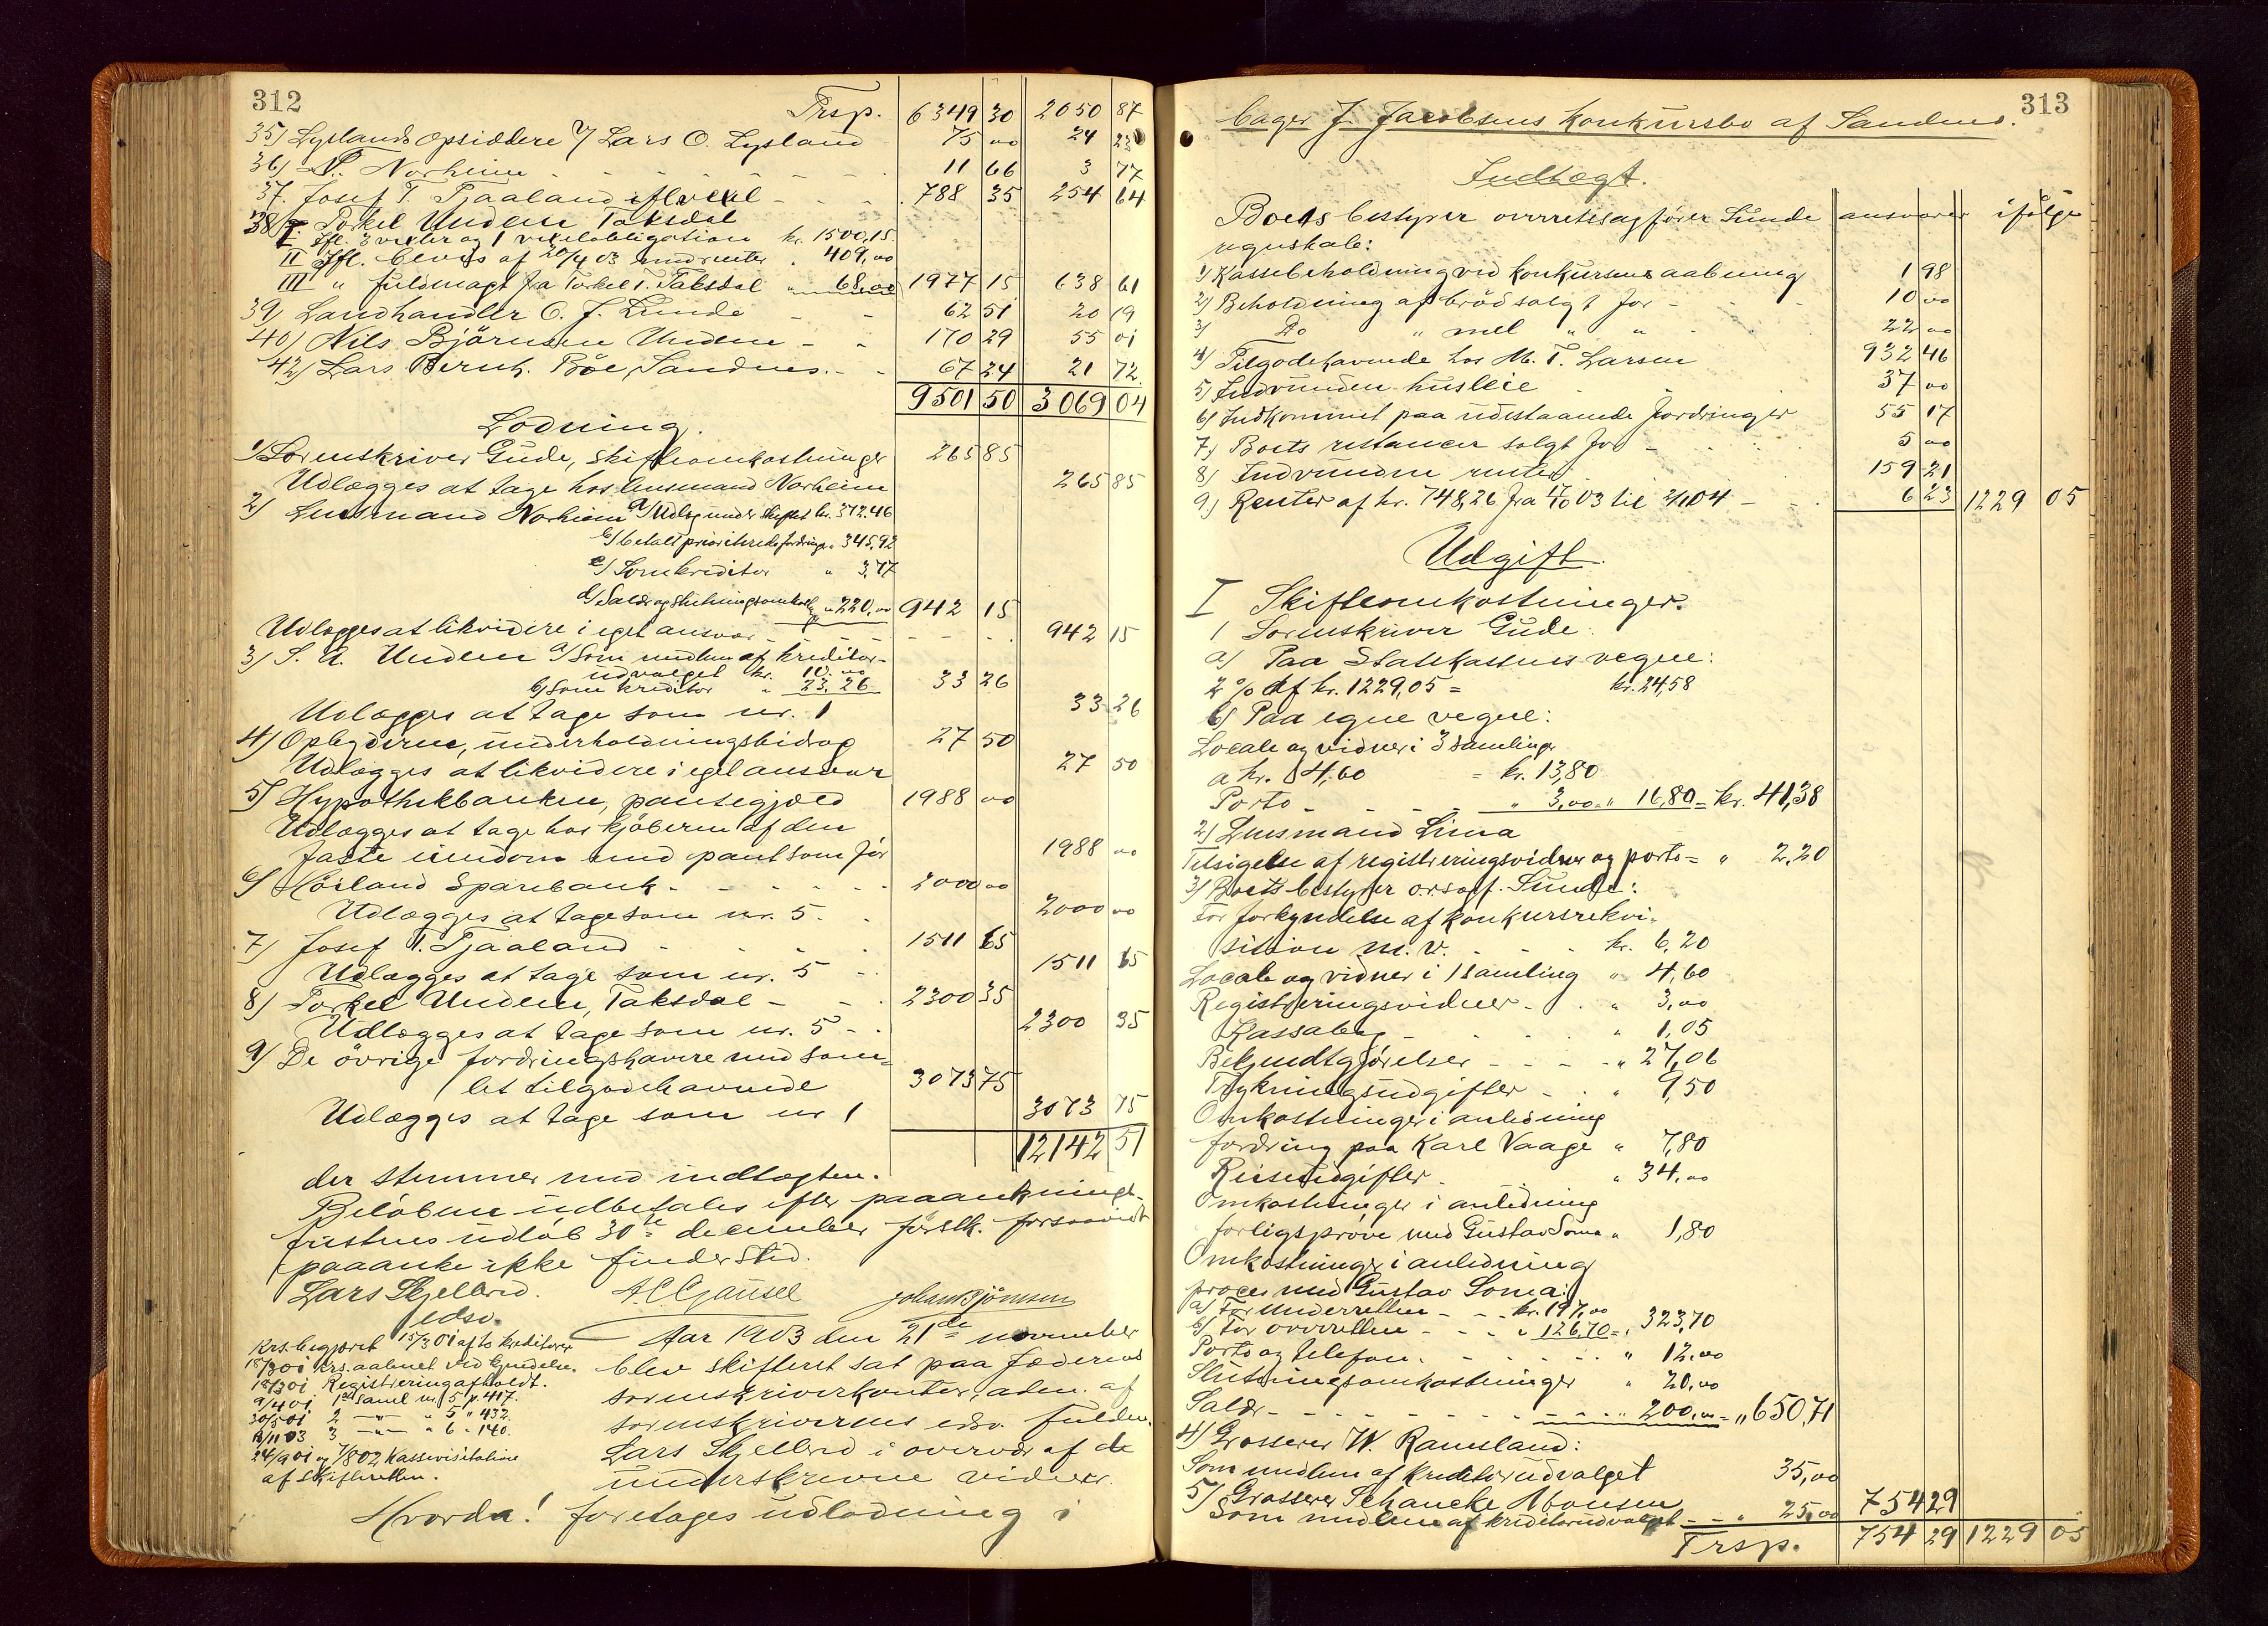 312
Trsp. 6349 30 2050 87
35) Lyslands opsiddere v/ Lars O. Lysland 75 00 24 23
36) P. Norheim 11 66 3 77
37. Josef T. Tjaaland ifl. vexel 788 35 254 64
38) Torkel Undem Taksdal
I Ifl. 3 vexler og 1 vexelobligation kr. 1500,15
II Ifl. bevis af 20/4 03 med renter " 409,00
III " fuldmagt fra Torkel T. Taksdal " 68,00 1977 15 638 61
39) Landhandler O. J. Lunde 62 51 20 19
40) Nils Björnsen Undem 170 29 55 01
42) Lars Bernh. Böe, Sandnes 67 24 21 72
9501 50 3069 04
Lodning.
1) Sorenskriver Gude, skifteomkostninger 265 85
Udlægges at tage hos lensmand Norheim 265 85
2) Lensmand Norheim a/ Udlæg under skiftet kr. 372.46
b/ betalt prioriterede fordringer " 345,92
c/ Som kreditor " 3,77
d/ Salær og slutningsomkostn. " 220,00 942 15
Udlægges at likvidere i eget ansvar 942 15
3) S. A. Undem a/ Som medlem af kreditor-
udvalget kr. 10.00
b/ Som kreditor " 23,26 33 26
Udlægges at tage som nr. 1 33 26
4) Opbyderne, underholdningsbidrag 27 50
Udlægges at likvidere i eget ansvar 27 50
5) Hypothekbanken, pantegjæld 1988 00
Udlægges at tage hos kjöberen af den
faste eiendom med pant som för 1988 00
6) Höiland Sparebank 2000 00
Udlægges at tage som nr. 5. 2000 00
7) Josef T. Tjaaland 1511 65
Udlægges at tage som nr. 5 1511 65
8) Torkel Undem, Taksdal 2300 35
Udlægges at tage som nr. 5 2300 35
9) De övrige fordringshavere med sam-
let tilgodehavende 3073 75
Udlægges at tage som nr 1 3073 75
12142 51
der stemmer med indtægten.
Belöbene udbetales efter paaanknings-
fristens udlöb 30te december förstk. forsaavidt
paaanke ikke finder sted.
Lars Skjelbred. A C Gausel Johan Bjömsen
edsv.
Krs. begjæret 15/3 01 af to kreditorer
15/3 01 krs. aabnet ved kjendelse.
18/3 01 Registrering afholdt.
9/4 01 1ste Saml nr 5 p. 417.
30/5 01 2 — " — " 5 " 432.
12/11 03 3 — " — " 6 " 140.
24/9 01 og 7/8 02 Kassevisitation
af skifteretten.
Aar 1903 den 21de november
blev skifteret sat paa Jæderens
sorenskriverkontor, adm. af
sorenskriverens edsv. fuldm.
Lars Skjelbred i overvær af de
underskrevne vidner.
Hvorda! foretages udlodning i
313
bager J. Jacobsens konkursbo af Sandnes.
Indtægt.
Boets bestyrer overretssagförer Sunde ansvarer ifölge
regnskab:
1) Kassebeholdning ved konkursens aabning 1 98
2) Beholdning af bröd solgt for 10 00
3) Do " mel " " 22 00
4) Tilgodehavende hos M. T. Larsen 932 46
5) Indvunden husleie 37 00
6) Indkommet paa udestaaende fordringer 55 17
7) Boets restancer solgt for 5 00
8) Indvundne renter 159 21
9) Renter af kr. 748,26 fra 1/10 03 til 2/1 04 6 23 1229 05
Udgift.
I Skifteomkostninger.
1 Sorenskriver Gude:
a) Paa Statskassens vegne:
2 % af kr. 1229,05 = kr. 24,58
b) Paa egne vegne:
Locale og vidner i 3 samlinger
a kr. 4,60 = kr. 13,80
Porto " 3,00 = " 16,80 = kr. 41,38
2) Lensmand Lima
Tilsigelse af registreringsvidner og porto = " 2,20
3) Boets bestyrer orsagf. Sunde:
For forkyndelse af konkursrekvi-
sition m.v. kr. 6,20
Locale og vidner i 1 samling " 4,60
Registreringsvidner " 3,00
Kassabog " 1,05
Bekjendtgjörelser " 27,06
Trykningsudgifter " 9,50
Omkostninger i anledning
fordring paa Karl Vaage " 7,80
Reiseudgifter " 34,00
Omkostninger i anledning
forligspröve med Gustav Soma " 1,80
Omkostninger i anledning
proces med Gustav Soma:
a) For underretten kr. 197,00
b) For overretten " 126,70 = " 323,70
Porto og telefon " 12,00
Slutningsomkostninger " 20,00
Salær " 200,00 = " 650,71
4) Grosserer W. Ramsland:
Som medlem af kreditorudvalget 35,00
5) Grosserer Schancke Monsen
Som medlem af kreditorudvalget " 25,00 754 29
Trsp. 754 29 1229 05